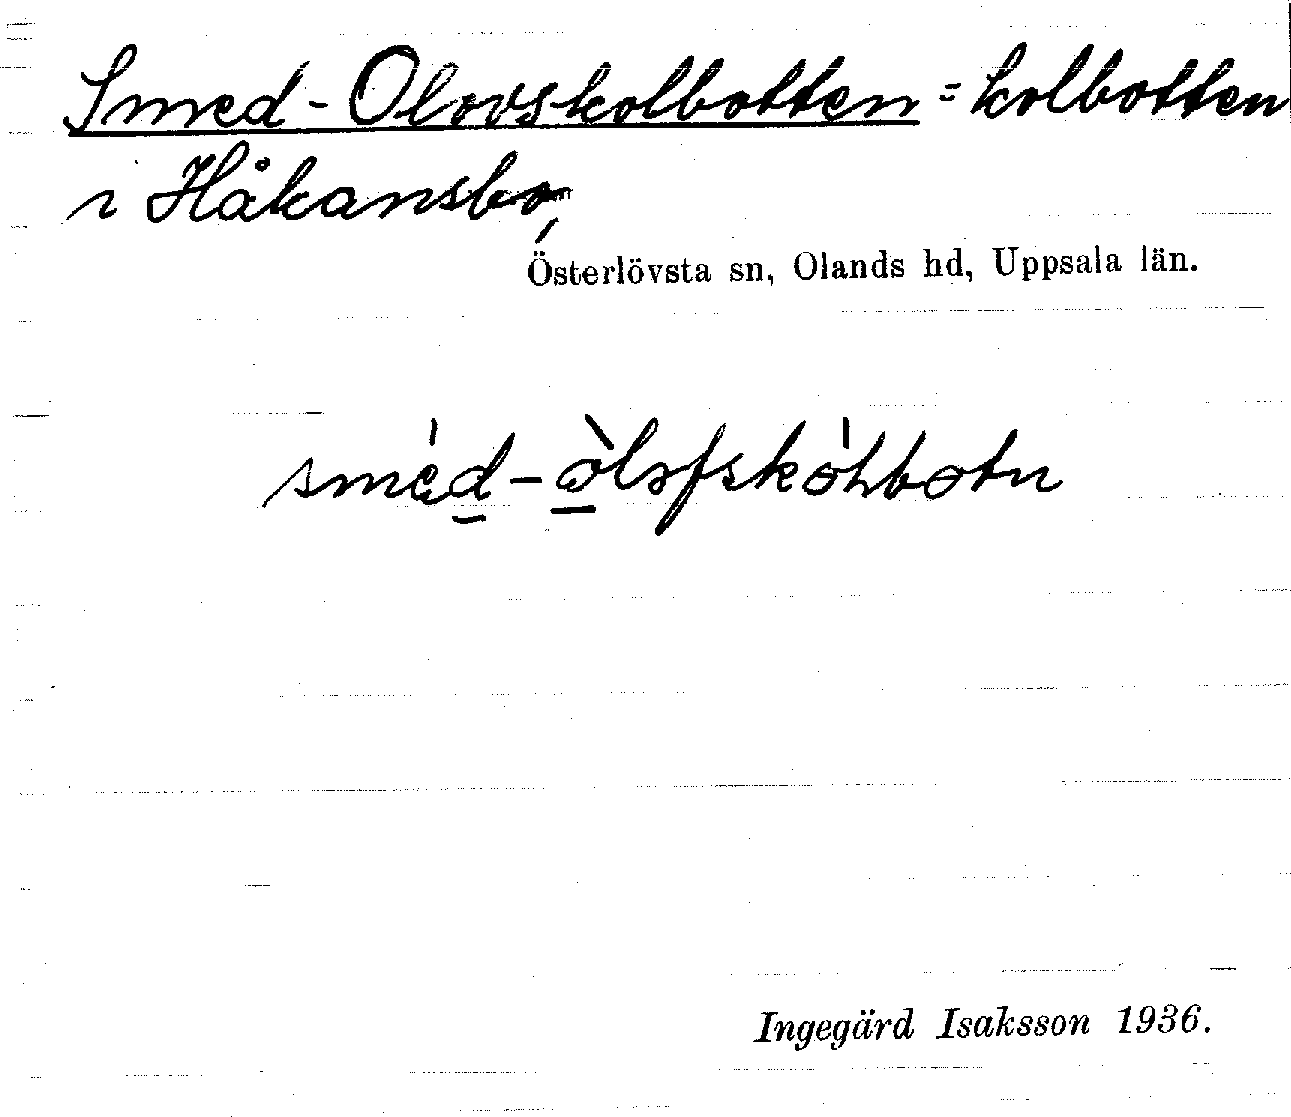 Smed-Olovskolbotten = kolbotten
i Håkansbo,
Österlövsta sn, Olands hd, Uppsala län.
smed-olofskolbotn
Ingegärd Isaksson 1936.